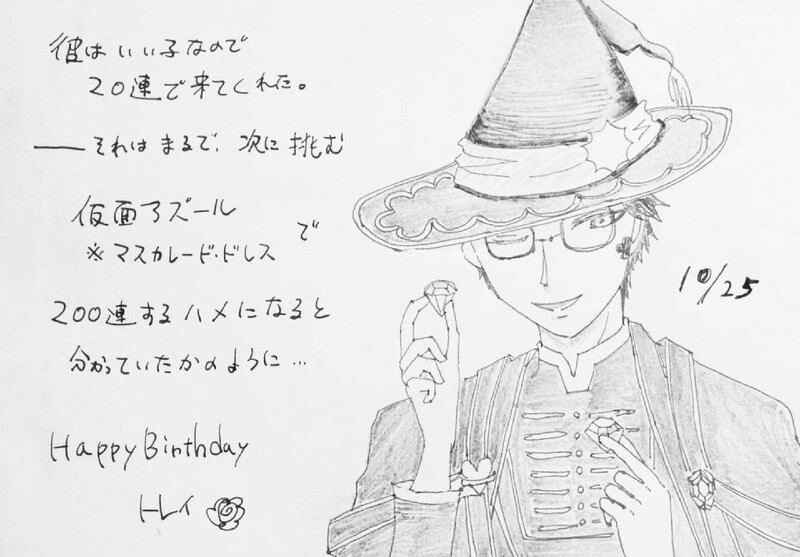 彼はいい子なので
20連で来てくれた。
――それはまるで、次に挑む
仮面アズール
※マスカレード・ドレス
で
200連するハメになると
分かっていたかのように…
Happy Birthday
トレイ
10/25